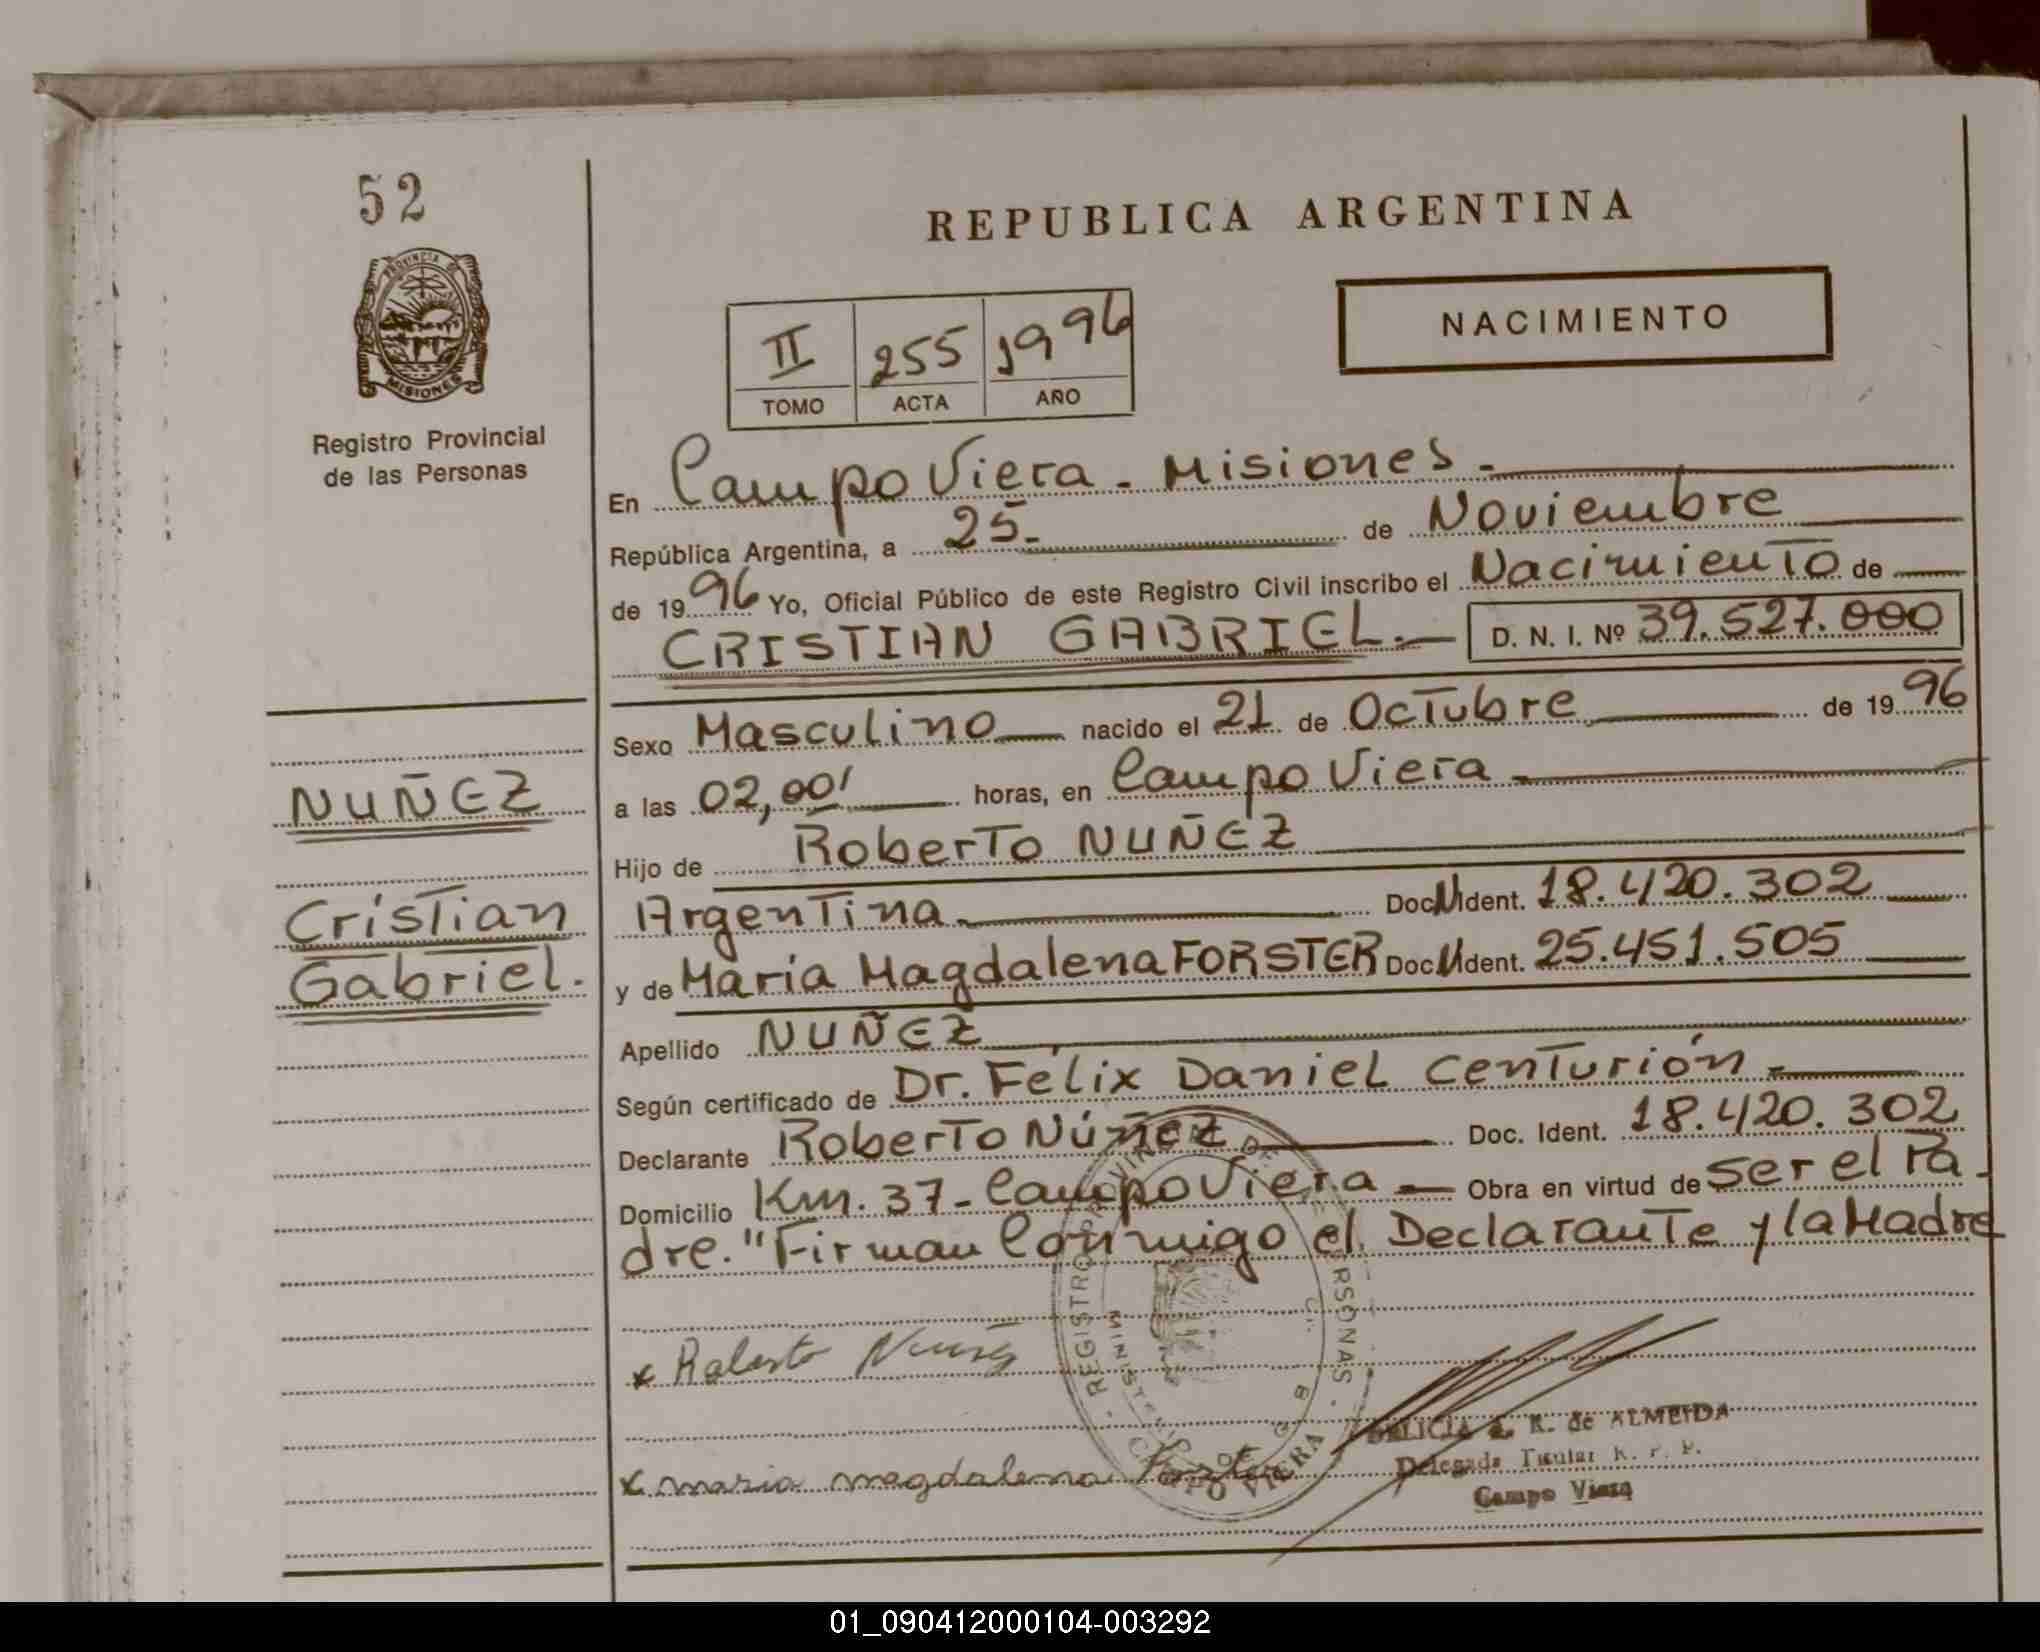 52
REPUBLICA ARGENTINA
PROVINCIA DE
MISIONES
NACIMIENTO
II 255 1996
TOMO ACTA AÑO
Registro Provincial
de las Personas
En Campo Viera - Misiones -
República Argentina, a 25- de Noviembre
de 1996 Yo, Oficial Público de este Registro Civil inscribo el Nacimiento de
CRISTIAN GABRIEL.- D. N. I. Nº 39.527.000
Sexo Masculino nacido el 21 de Octubre de 1996
a las 02,00' horas, en Campo Viera -
NUÑEZ
Hijo de Roberto NUÑEZ
Cristian
Argentina - Doc N Ident. 18.420.302
Gabriel.
y de María Magdalena FORSTER Doc N Ident. 25.451.505
Apellido NUÑEZ
Según certificado de Dr. Félix Daniel Centurión -
Declarante Roberto Núñez Doc. Ident. 18.420.302
Domicilio Km. 37 - Campo Viera - Obra en virtud de ser el Pa-
dre. "Firman Conmigo el Declarante y la Madre
REGISTRO PROVINCIAL DE LAS PERSONAS
CAMPO VIERA
x Roberto Nuñez
DELICIA R. de ALMEIDA
Delegada Titular R. P. P.
Campo Viera
x maria magdalena Forster
01_090412000104-003292